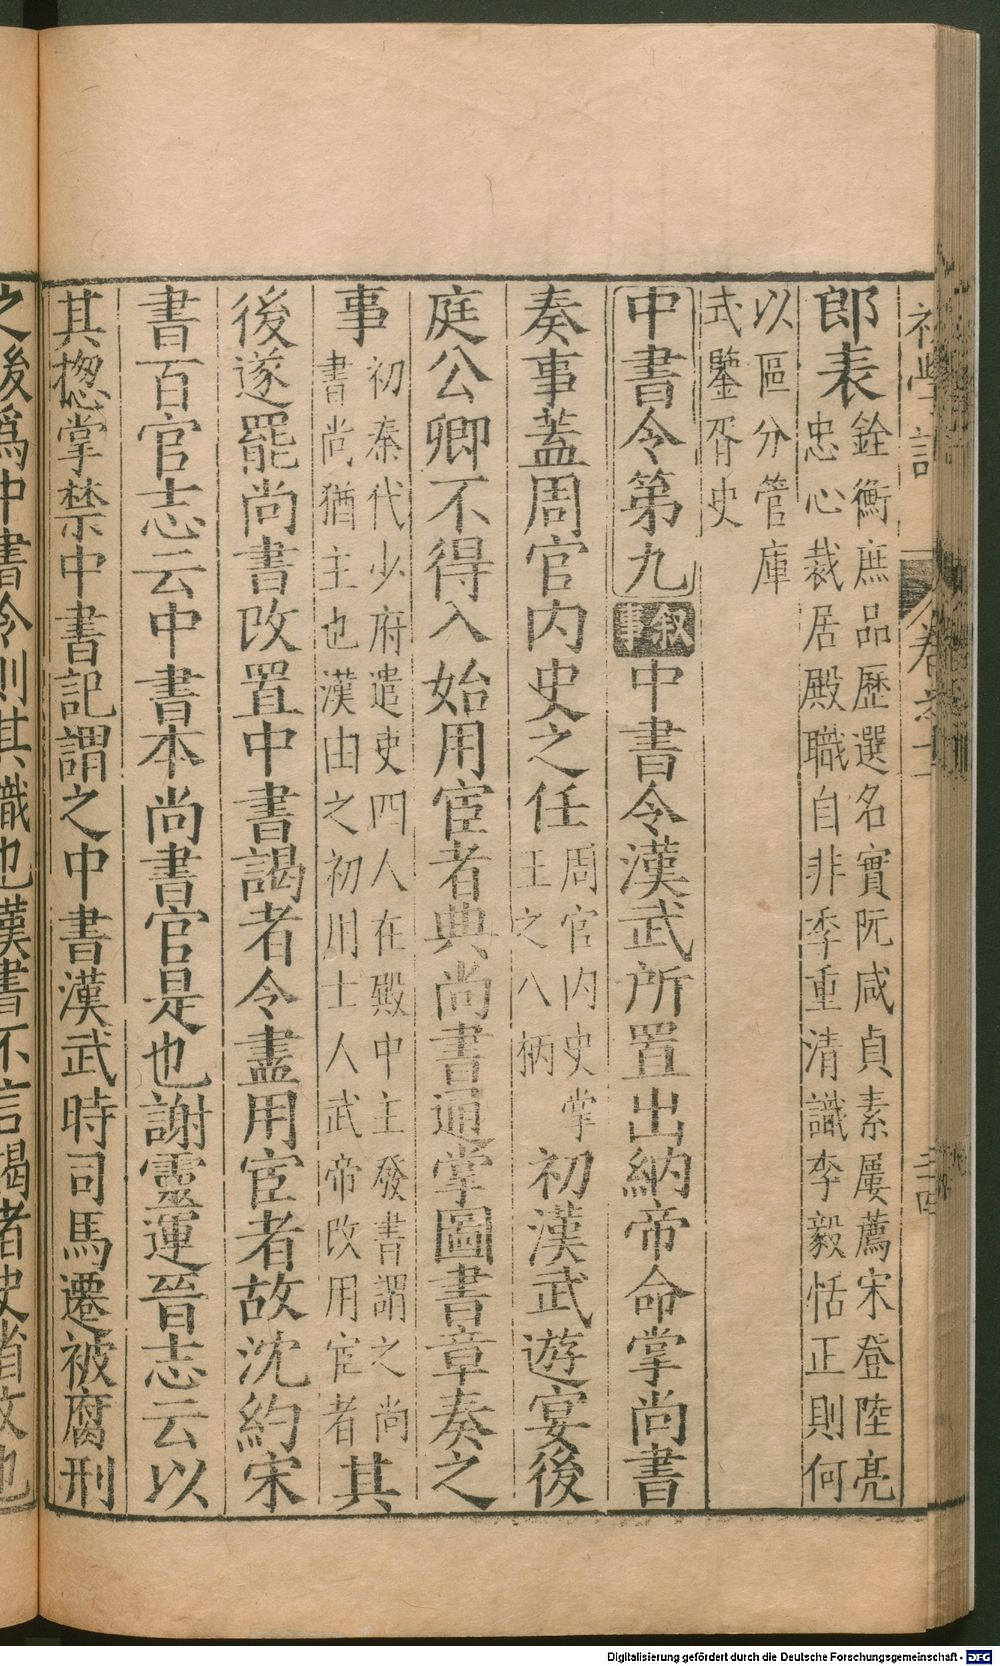 初學記 卷之十一 三十四
郎表 銓衡庶品歷選名實阮咸貞素屢薦宋登陸亮
忠心裁居殿職自非季重清識李毅恬正則何
以區分管庫
式鑒胥史
中書令第九 叙事 中書令漢武所置出納帝命掌尚書
奏事蓋周官內史之任 周官內史掌
王之八柄 初漢武遊宴後
庭公卿不得入始用宦者典尚書通掌圖書章奏之
事 初秦代少府遣吏四人在殿中主發書謂之尚
書尚猶主也漢由之初用士人武帝改用宦者 其
後遂罷尚書改置中書謁者令盡用宦者故沈約宋
書百官志云中書本尚書官是也謝靈運晉志云以
其揔掌禁中書記謂之中書漢武時司馬遷被腐刑
之後爲中書令則其職也漢書不言謁者史省文也
Digitalisierung gefördert durch die Deutsche Forschungsgemeinschaft - DFG